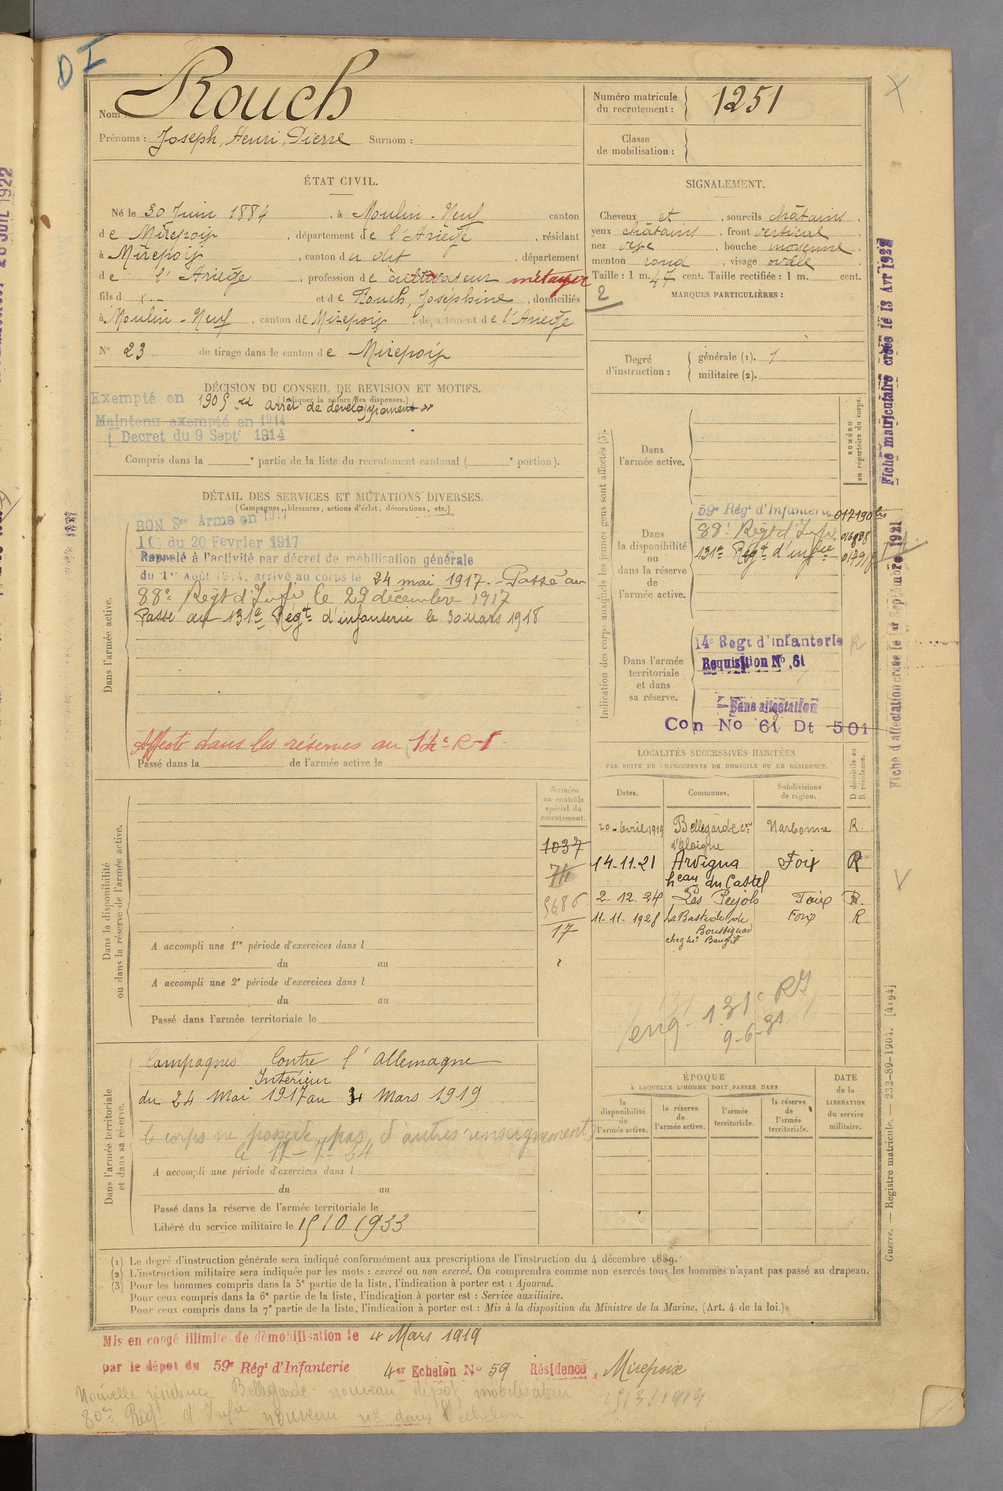 D I
Nom : Rouch
Prénoms : Joseph, Henri, Pierre Surnom :
Numéro matricule du recrutement : 1251
Classe de mobilisation :
ÉTAT CIVIL.
Né le 30 Juin 1884, à Moulin-Neuf canton
de Mirepoix, département de l'Ariège, résidant
à Mirepoix, canton du dit, département
de l'Ariège, profession de cultivateur métayer
fils d et de Rouch, Joséphine, domiciliés
à Moulin-Neuf, canton de Mirepoix, département de l'Ariège
N° 23 de tirage dans le canton de Mirepoix
SIGNALEMENT.
Cheveux et, sourcils châtains.
yeux châtains, front vertical
nez, bouche moyenne
menton rond, visage ovale
Taille : 1 m. 47 cent. Taille rectifiée : 1 m. cent.
2 MARQUES PARTICULIÈRES :
Degré d'instruction : générale (1). 1
militaire (2).
DÉCISION DU CONSEIL DE REVISION ET MOTIFS.
(Indiquer la nature des dispenses.)
Exempté en 1905 "arrêt de développement"
Maintenu exempté en 1914
(Decret du 9 Sept. 1914
Compris dans la e partie de la liste du recrutement cantonal ( e portion).
DÉTAIL DES SERVICES ET MUTATIONS DIVERSES.
(Campagnes, blessures, actions d'éclat, décorations, etc.)
Dans l'armée active.
BON Sce Armé en 1917
du 20 Fevrier 1917
Rappelé à l'activité par décret de mobilisation générale
du 1er Août 1914, arrivé au corps le 24 mai 1917. Passé au
88e Régt d'Infie le 29 décembre 1917
Passé au 131e Régt d'infanterie le 30 mars 1918
Affecté dans les réserves au 14e R.I
Passé dans la de l'armée active le
Indication des corps auxquels les jeunes gens sont affectés (3).
Dans l'armée active.
NUMÉRO au répertoire du corps.
Dans la disponibilité ou dans la réserve de l'armée active.
59e Régt d'Infanterie 017190 bis
88e Régt d'Infie
131e Régt d'infie
Dans l'armée territoriale et dans sa réserve.
14e Regt d'infanterie R
Requisition N° 61
Sans affectation
Con No 61 Dt 501
Fiche matriculaire créée le 13 Avr 1922
Fiche d'affectation créée le 1er Septembre 1921
LOCALITÉS SUCCESSIVES HABITÉES
PAR SUITE DE CHANGEMENTS DE DOMICILE OU DE RÉSIDENCE.
D domicile ou R résidence.
Dates. Communes. Subdivisions de région.
20 Avril 1919 Bellegarde Narbonne R.
14.11.21 Arvigna Foix R
heau du Castel
2.12.24 Les Pujols Foix R.
11-11-1928 La Bastide de Foix R
Boussignac
chez Mr
131e RI
9-6-31
Dans la disponibilité ou dans la réserve de l'armée active.
Numéro au contrôle spécial du recrutement.
1037
5686
17
A accompli une 1re période d'exercices dans l
du au
A accompli une 2e période d'exercices dans l
du au
Passé dans l'armée territoriale le
Dans l'armée territoriale et dans sa réserve.
Campagnes Contre l'Allemagne
Intérieur
du 24 Mai 1917 au 4 Mars 1919
le corps ne possède pas d'autres renseignements
le 17-7-34
A accompli une période d'exercices dans l
du au
Passé dans la réserve de l'armée territoriale le
Libéré du service militaire le 15 10 1933
ÉPOQUE
À LAQUELLE L'HOMME DOIT PASSER DANS
la disponibilité de l'armée active.
la réserve de l'armée active.
l'armée territoriale.
la réserve de l'armée territoriale.
DATE de la LIBÉRATION du service militaire.
Guerre. — Registre matricule. — 232-89-1904. [4194]
(1) Le degré d'instruction générale sera indiqué conformément aux prescriptions de l'instruction du 4 décembre 1889.
(2) L'instruction militaire sera indiquée par les mots : exercé ou non exercé. On comprendra comme non exercés tous les hommes n'ayant pas passé au drapeau.
(3) Pour les hommes compris dans la 5e partie de la liste, l'indication à porter est : Ajourné.
Pour ceux compris dans la 6e partie de la liste, l'indication à porter est : Service auxiliaire.
Pour ceux compris dans la 7e partie de la liste, l'indication à porter est : Mis à la disposition du Ministre de la Marine. (Art. 4 de la loi.)
Mis en congé illimité de démobilisation le 4 Mars 1919
par le dépot du 59e Régt d'Infanterie 4er Echelon N° 59 Résidence, Mirepoix
Nouvelle résidence Bellegarde nouveau dépôt mobilisateur
80e Régt d'Infie nouveau n° dans l'échelon